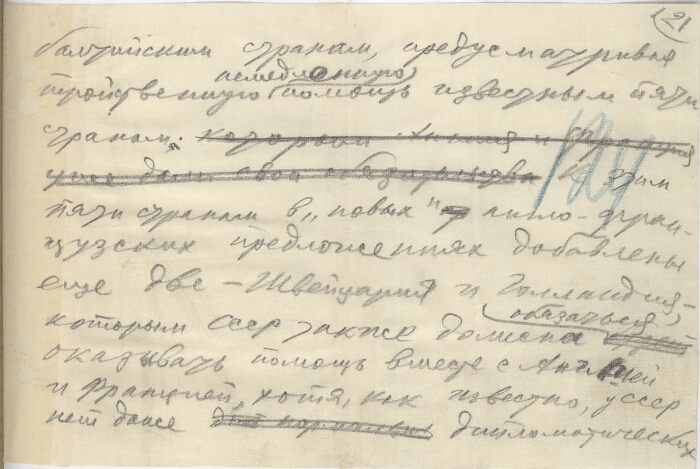 21
балтийским странам, предусматривая
немедленную
тройственную помощь известным пяти
странам. которым Англия и Франция
уже дали свои обязательства К этим
пяти странам в „новых" англо-фран-
цузских предложениях добавлены
еще две – Швейцария и Голландия –
обязаться
которым СССР также должен
оказывать помощь вместе с Англией
и Францией, хотя, как известно, у СССР
нет даже дипломатических